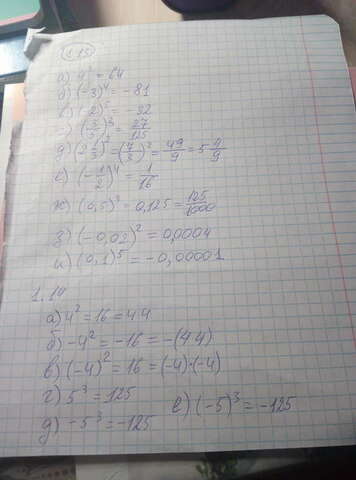 1.13
а) 4³ = 64
б) (-3)⁴ = -81
в) (-2)⁵ = -32
г) (3/5)³ = 27/125
д) (-2 1/3)² = (7/3)² = 49/9 = 5 4/9
е) (-1/2)⁴ = 1/16
ж) (0,5)³ = 0,125 = 125/1000
з) (-0,02)² = 0,0004
и) (0,1)⁵ = -0,00001
1.14
а) 4² = 16 = 4·4
б) -4² = -16 = -(4·4)
в) (-4)² = 16 = (-4)·(-4)
г) 5³ = 125
е) (-5)³ = -125
д) -5³ = -125